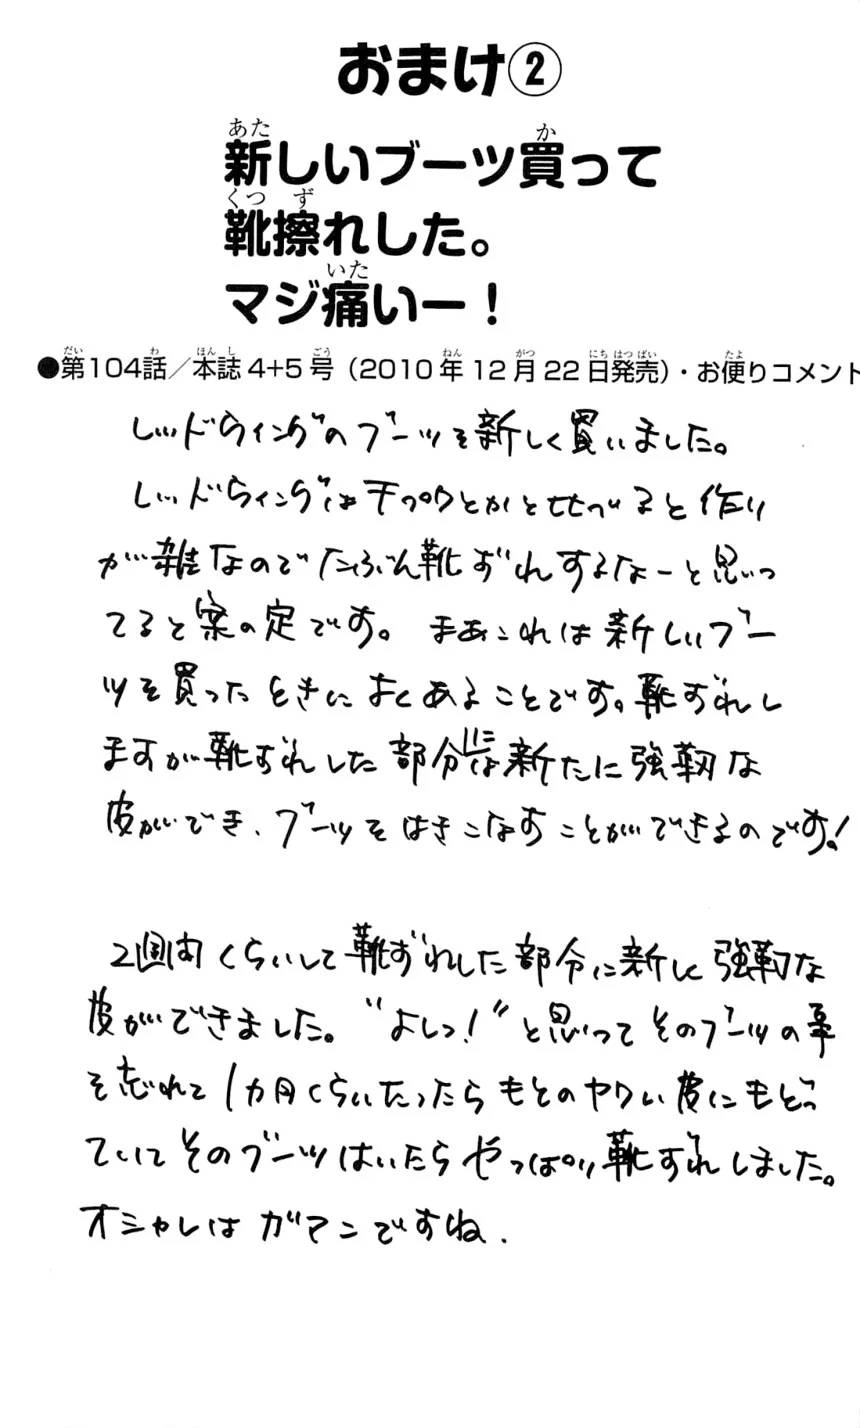 おまけ②
新しいブーツ買って
靴擦れした。
マジ痛いー！
●第104話／本誌4+5号（2010年12月22日発売）・お便りコメント
レッドウィングのブーツを新しく買いました。
レッドウィングは とかと比べると作り
が雑なのでたぶん靴ずれするなーと思っ
てると案の定です。まあこれは新しいブー
ツを買ったときによくあることです。靴ずれし
ますが靴ずれした部分には新たに強靭な
皮ができ、ブーツをはきこなすことができるのです！
2週間くらいして靴ずれした部分に新しく強靭な
皮ができました。“よしっ！”と思ってそのブーツの事
を忘れて1カ月くらいたったらもとのヤワい皮にもどっ
ていてそのブーツはいたらやっぱり靴ずれしました。
オシャレはガマンですね．